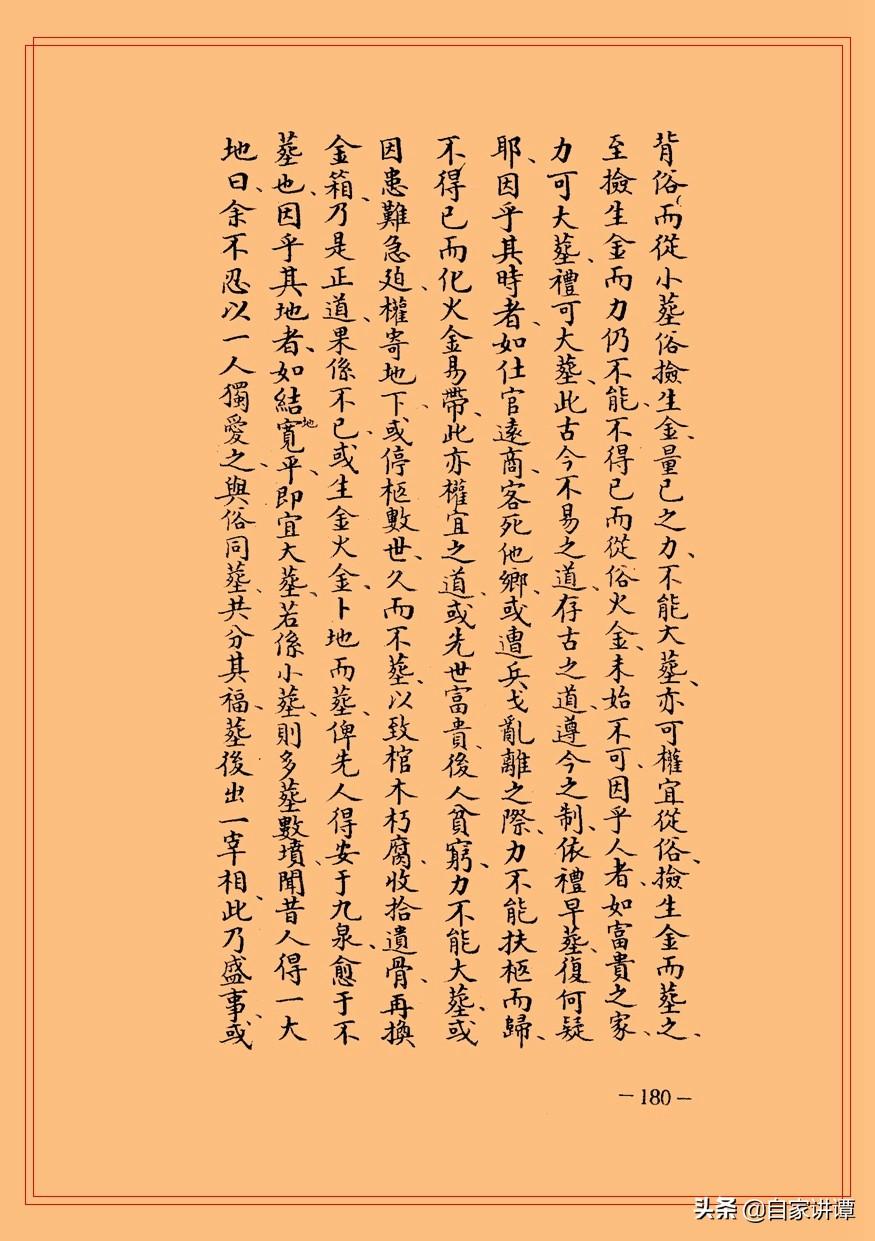 背俗而從小墓俗撿生金、量已之力、不能大墓、亦可權宜從俗、撿生金而墓之、
至撿生金而力仍不能、不得已而從俗火金、未始不可、因乎人者、如富貴之家、
力可大墓、禮可大墓、此古今不易之道、存古之道、遵今之制、依禮早墓、復何疑
耶、因乎其時者、如仕官遠商、客死他鄉、或遭兵戈亂離之際、力不能扶柩而歸、
不得已而化火金易帶、此亦權宜之道、或先世富貴、後人貧窮、力不能大墓、或
因患難急廹、權寄地下、或停柩數世、久而不墓、以致棺木朽腐、收拾遺骨、再換
金箱、乃是正道、果係不已、或生金火金、卜地而墓、俾先人得安于九泉、愈于不
墓也、因乎其地者、如結地寬平、即宜大墓、若係小墓、則多墓數墳、聞昔人得一大
地曰、余不忍以一人獨愛之、與俗同墓、共分其福、墓後出一宰相、此乃盛事、或
－180－
头条 @自家讲谭